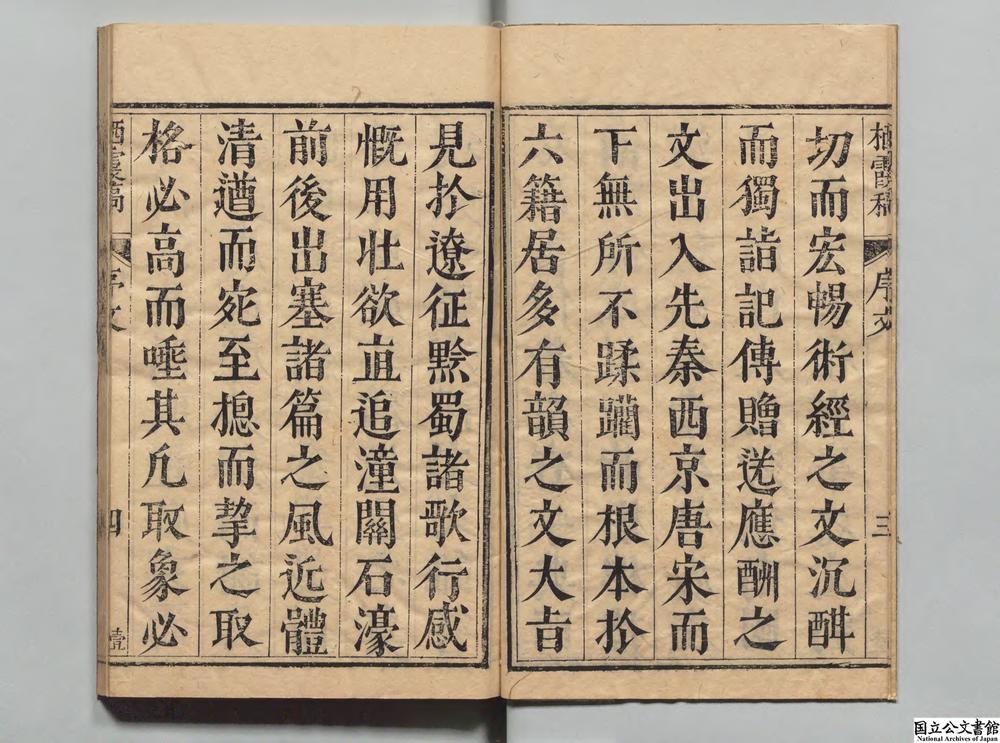 栖霞稿 序文 三
切而宏暢術經之文沉酣
而獨詣記傳贈送應酬之
文出入先秦西京唐宋而
下無所不蹂躪而根本扵
六籍居多有韻之文大旹
見扵遼征黔蜀諸歌行感
慨用壮欲直追潼關石濠
前後出塞諸篇之風近體
清遒而宛至揔而挈之取
格必高而唾其凢取象必
栖霞稿 序文 四 壹
国立公文書館
National Archives of Japan